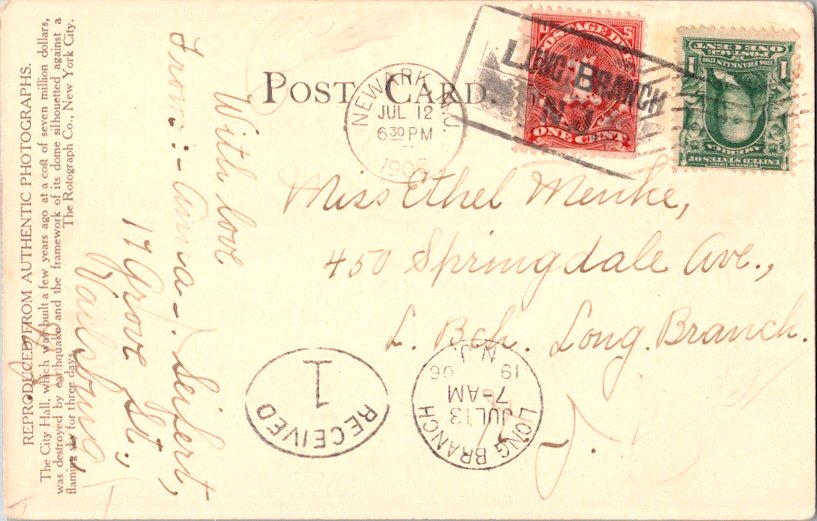 REPRODUCED FROM AUTHENTIC PHOTOGRAPHS.
The City Hall, which was built a few years ago at a cost of seven million dollars,
was destroyed by earthquake and the framework of its dome silhouetted against a
flaming sky for three days.
The Rotograph Co., New York City.
With love
From:- Anna J. Seifert,
17 Grove St.,
Vailsburg,
POST CARD.
NEWARK, N.J.
JUL 12
6 30 PM
1906
POSTAGE DUE
ONE CENT
LONG BRANCH
N.J.
POSTAGE
ONE CENT
1
1
FRANKLIN
UNITED STATES OF
AMERICA
Miss Ethel Menke,
450 Springdale Ave.,
L. Bch. Long Branch.
N. J.
RECEIVED
1
LONG BRANCH
JUL 13
7-AM
19 06
N.J.